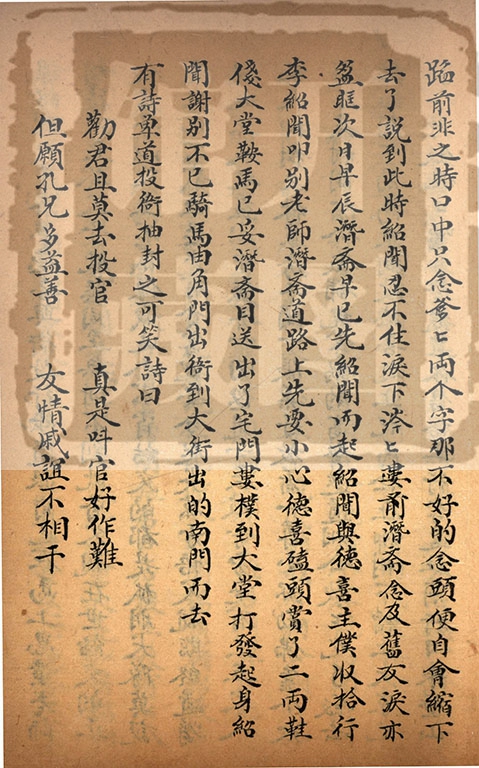 蹈前非之時口中只念爹〻兩个字那不好的念頭便自會縮下
去了說到此時紹聞忍不住淚下涔〻婁前潛斋念及舊友淚亦
盈眶次日早辰潛斋早已先紹聞而起紹聞與德喜主僕收拾行
李紹聞叩别老師潛斋道路上先要小心德喜磕頭賞了二両鞋
価大堂鞍馬已妥潛斋目送出了宅門婁樸到大堂打發起身紹
聞謝别不已騎馬由角門出衙到大街出的南門而去
有詩单道投衙抽封之可笑詩曰
勸君且莫去投官　真是呌官好作難
但願孔兄多益善　友情戚誼不相干